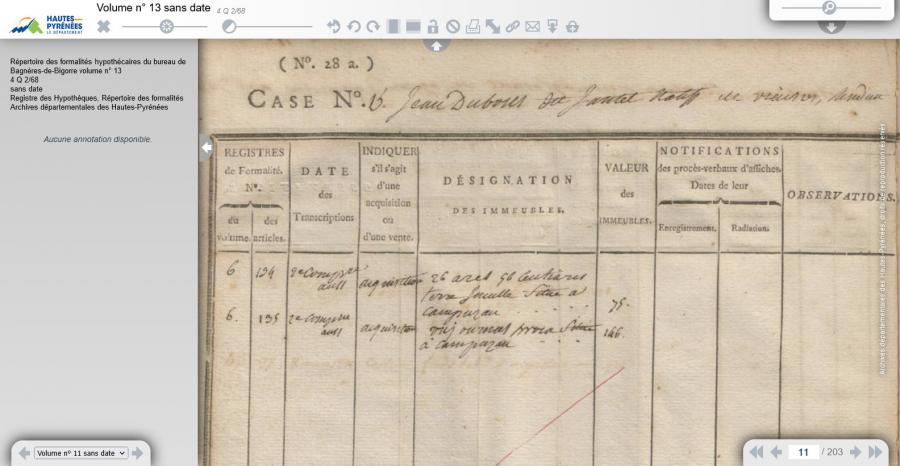 Volume n° 13 sans date 4 Q 2/68
HAUTES-
PYRÉNÉES
LE DÉPARTEMENT
Répertoire des formalités hypothécaires du bureau de
Bagnères-de-Bigorre volume n° 13
4 Q 2/68
sans date
Registre des Hypothéques, Répertoire des formalités
Archives départementales des Hautes-Pyrénées
Aucune annotation disponible.
( N°. 28 a. )
CASE N°. 6. Jean
REGISTRES
de Formalité.
N°.
du
volume.
des
articles.
DATE
des
Transcriptions
INDIQUER
s'il s'agit
d'une
acquisition
ou
d'une vente.
DÉSIGNATION
DES IMMEUBLES.
VALEUR
des
IMMEUBLES.
NOTIFICATIONS
des procès-verbaux d'affiches.
Dates de leur
Enregistrement.
Radiation.
OBSERVATIONS.
6 134 acquisition 26 ares 56 Centiares
terre Située a
campuzan 75.
6. 135 acquisition
à campuzan 166.
Archives départementales des Hautes-Pyrénées, droits de reproduction réservés
Volume n° 11 sans date
11 / 203